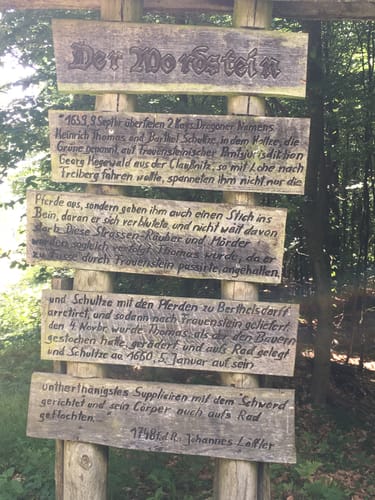 Der Mordstein
"1659, 9. Septbr. überfielen 2 Kays. Dragoner Namens
Heinrich Thomas und Barthel Schultze, in dem Holtze, die
Grüne genannt, auf Frauensteinischer Amtsjurisdiktion
Georg Hegewald aus der Claußnitz, so mit Lohe nach
Freiberg fahren wollte, spanneten ihm nicht nur die
Pferde aus, sondern gaben ihm auch einen Stich ins
Bein, daran er sich verblutete, und nicht weit davon
starb. Diese Strassen-Räuber und Mörder
wurden sogleich verfolgt. Thomas wurde, da er
zu Fusse durch Frauenstein passirte, angehalten,
und Schultze mit den Pferden zu Berthelsdorff
arretiret, und sodann nach Frauenstein geliefert,
den 4. Novbr. wurde Thomas, als der den Bauern
gestochen hatte, gerädert und aufs Rad gelegt
und Schultze ao. 1660, 5. Januar auf sein
unterthänigstes Suppliciren mit dem Schwerd
gerichtet und sein Cörper auch aufs Rad
geflochten."
1748 Johannes Löffler